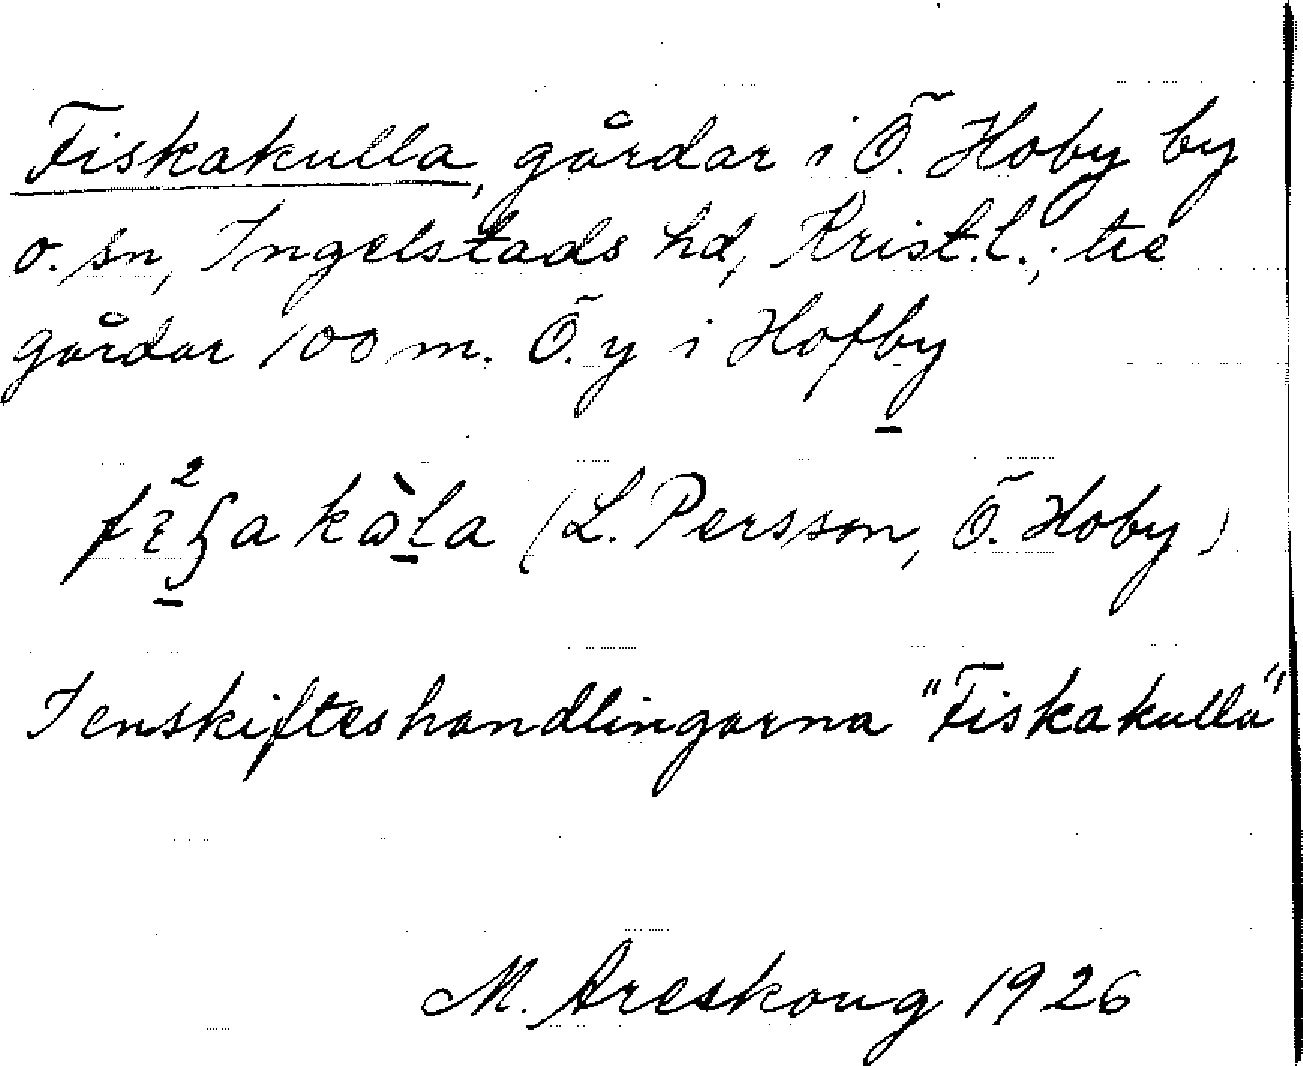 Fiskakulla, gårdar i Ö. Hoby by
o. sn, Ingelstads hd, Krist.l.; tre
gårdar 100 m. Ö.y i Hofby
(L. Persson, Ö. Hoby)
I enskifteshandlingarna "Fiskakulla"
M. Areskoug 1926